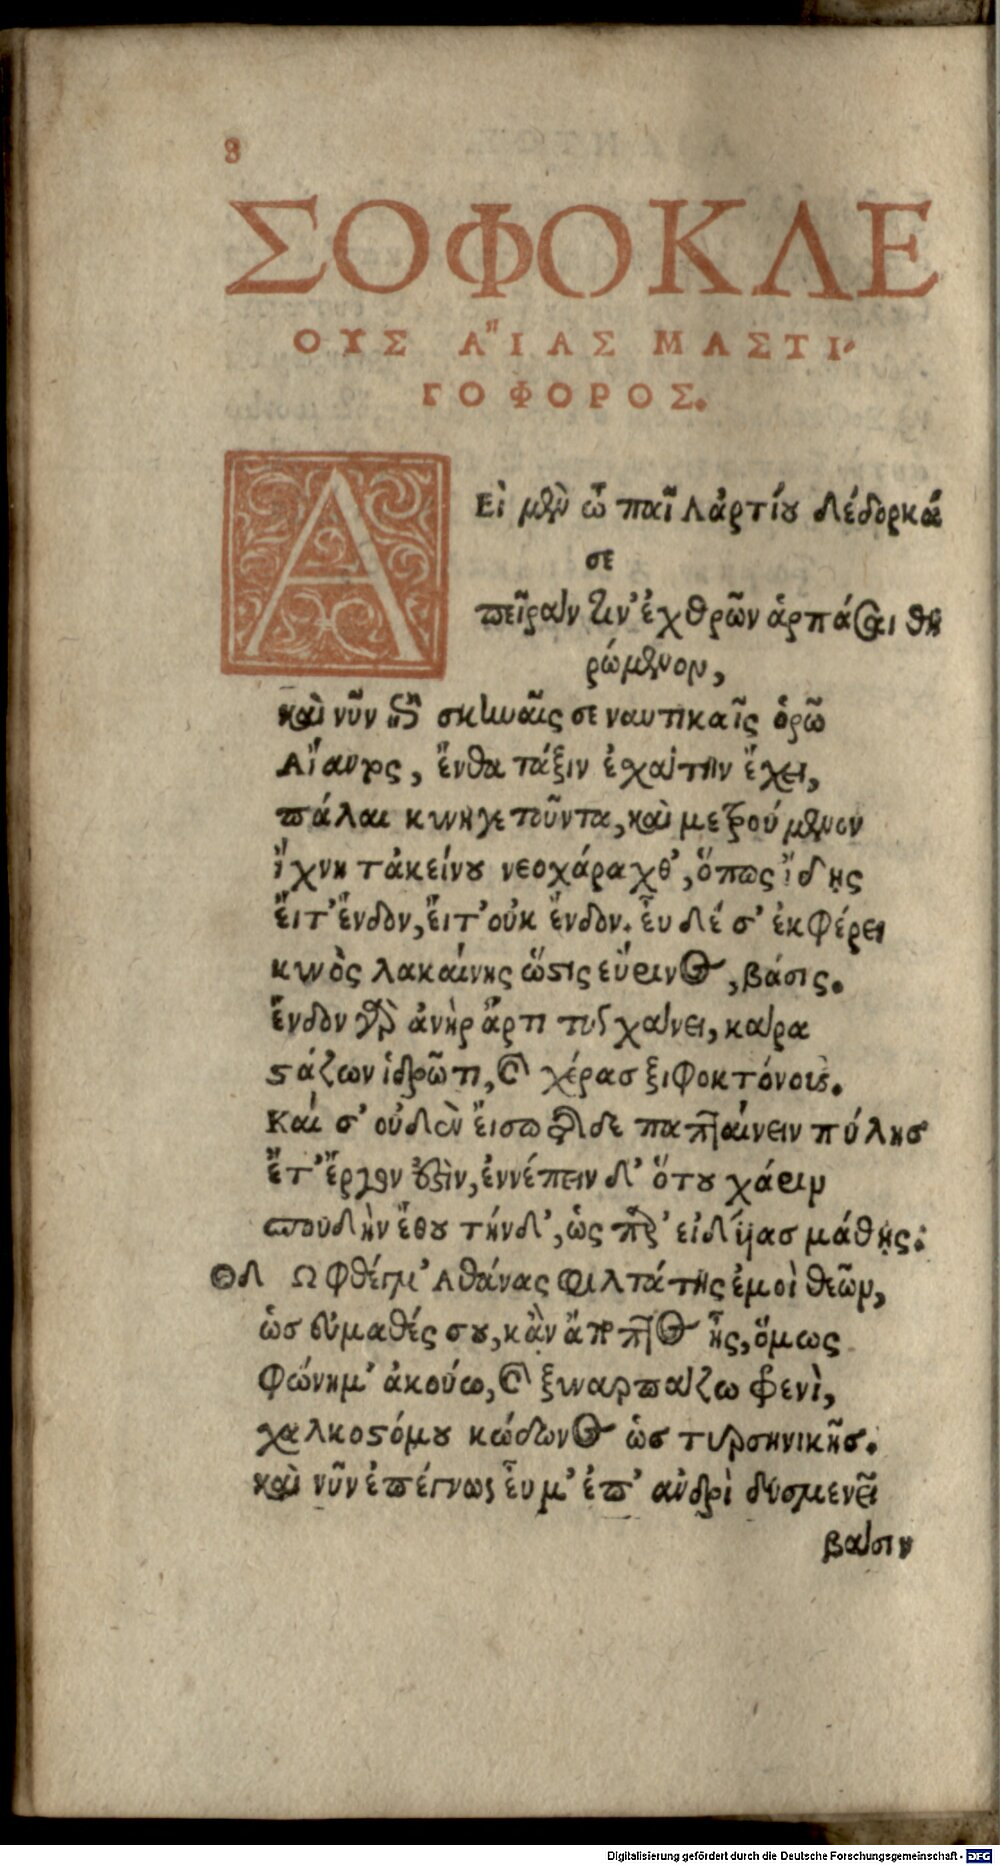 8
ΣΟΦΟΚΛΕ
ΟΥΣ ΑἼΙΑΣ ΜΑΣΤΙ-
ΓΟΦΟΡΟΣ.
Αεὶ μὲν ὦ παῖ Λαρτίου δέδορκά
σε
πεῖράν τιν' ἐχθρῶν ἁρπάσαι θη
ρώμενον,
καὶ νῦν ἐπὶ σκηναῖς σε ναυτικαῖς ὁρῶ
Αἴαντος, ἔνθα τάξιν ἐχάτην ἔχει,
πάλαι κυνηγετοῦντα, καὶ μετρούμενον
ἴχνη τἀκείνου νεοχάραχθ', ὅπως ἴδῃς
εἴτ' ἔνδον, εἴτ' οὐκ ἔνδον. εὖ δέ σ' ἐκφέρει
κυνὸς λακαίνης ὥστις εὔρινος, βάσις.
ἔνδον γὰρ ἀνὴρ ἄρτι τυγχάνει, κάρα
στάζων ἱδρῶτι, καὶ χέρας ξιφοκτόνους.
Καί σ' οὐδὲν εἴσω τῆσδε παπταίνειν πύλης
ἔτ' ἔργον ἐστὶν, ἐννέπειν δ' ὅτου χάριν
σπουδὴν ἔθου τήνδ', ὡς παρ' εἰδυίας μάθῃς.
ΟΔ Ω φθέγμ' Αθάνας φιλτάτης ἐμοὶ θεῶν,
ὡς εὐμαθές σου, κἂν ἄποπτος ᾖς, ὅμως
φώνημ' ἀκούω, καὶ ξυναρπάζω φρενὶ,
χαλκοστόμου κώδωνος ὡς τυρσηνικῆς.
καὶ νῦν ἐπέγνως εὖ μ' ἐπ' ἀνδρὶ δυσμενεῖ
βάσιν
Digitalisierung gefördert durch die Deutsche Forschungsgemeinschaft - DFG